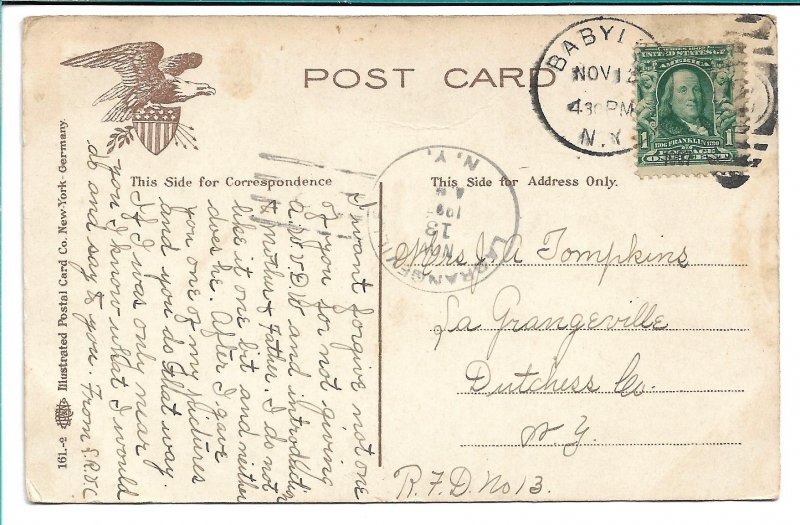 POST CARD
BABYL
NOV 12
4 30 PM
N.Y.
SERIES 1902
UNITED STATES OF
AMERICA
1706 FRANKLIN 1790
POSTAGE
1 ONE CENT 1
This Side for Correspondence
This Side for Address Only.
N.Y.
NOV
13
I want forgive not one
of you for not giving
and introduction
to Mother & Father. I do not
like it one bit and neither
does he. After I gave
you one of my pictures
and you do that way.
If I was only near
you I know what I would
do and say to you. From
Mrs J. A Tompkins
La Grangeville
Dutchess Co.
N. Y.
R. F. D. No 13.
161.-2 Illustrated Postal Card Co. New-York - Germany.